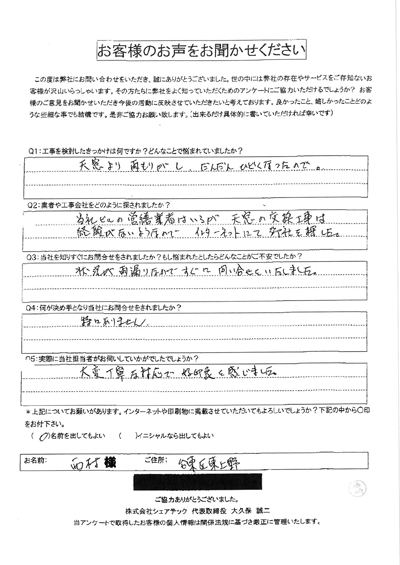 お客様のお声をお聞かせください
この度は弊社にお問い合わせをいただき、誠にありがとうございました。世の中には弊社の存在やサービスをご存知ないお
客様が沢山いらっしゃいます。その方たちに弊社をよく知っていただくためのアンケートにご協力いただけるでしょうか？ お客
様のご意見をお聞かせいただき今後の活動に反映させていただきたいと考えております。良かったこと、嬉しかったことどのよ
うな些細な事でも結構です。是非ご協力お願い致します。（出来るだけ具体的に書いていただければ幸いです）
Q1：工事を検討したきっかけは何ですか？どんなことで悩まれていましたか？
天窓より雨もりがし、だんだんひどくなったので。
Q2：業者や工事会社をどのように探されましたか？
当社ビルの営繕業者はいるが 天窓の交換工事は
経験がないようなので インターネットにて 会社を探した。
Q3：当社を知りすぐにお問合せをされましたか？もし悩まれたとしたらどんなことがご不安でしたか？
状況が雨漏りなので すぐに 問い合せをいたしました。
Q4：何が決め手となり当社にお問合せをされましたか？
特にありません
Q5：実際に当社担当者がお伺いしていかがでしたでしょうか？
大変丁寧な対応で 好印良く感じました。
＊上記についてお願いがあります。インターネットや印刷物に掲載させていただいてもよろしいでしょうか？下記の中から〇印
をお付下さい。
（〇）名前を出してもよい （ ）イニシャルなら出してもよい
お名前： 西村 様 ご住所： 台東区東上野
ご協力ありがとうございました。
株式会社シェアテック 代表取締役 大久保 誠二
当アンケートで取得したお客様の個人情報は関係法規に基づき厳正に管理いたします。